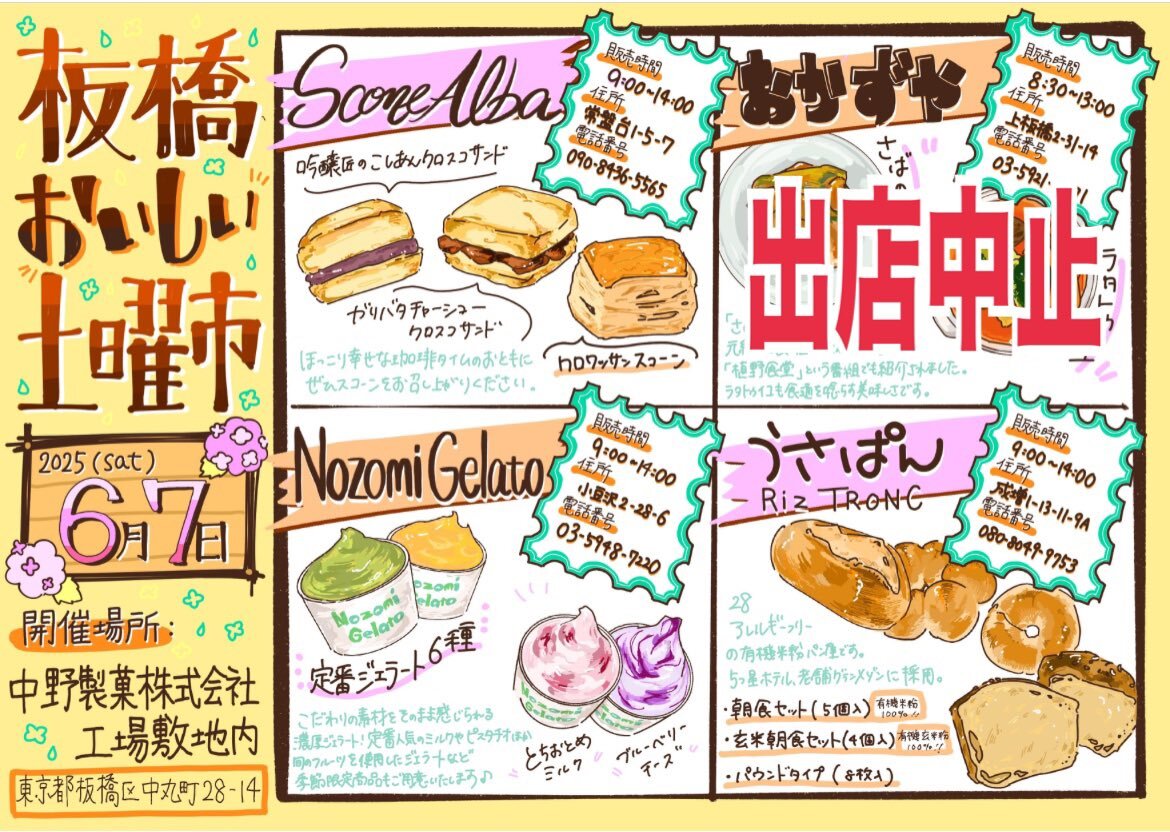 板橋
おいしい
土曜市
2025(sat)
6月7日
開催場所:
中野製菓株式会社
工場敷地内
東京都板橋区中丸町28-14
Scone Alba
販売時間
9:00~14:00
住所
常盤台1-5-7
電話番号
090-8436-5565
吟醸匠のこしあんクロスコサンド
ガリバタチャーシュー
クロスコサンド
クロワッサンスコーン
ほっこり幸せな珈琲タイムのおともに
ぜひスコーンをお召し上がりください。
おかずや
販売時間
8:30~13:00
住所
上板橋2-31-14
電話番号
03-5921-
さばの
出店中止
ラタトゥ
「さ
元
「植野食堂」という番組でも紹介されました。
ラタトゥイユも食通を唸らす美味しさです。
Nozomi Gelato
販売時間
9:00~14:00
住所
小豆沢2-28-6
電話番号
03-5948-7220
Nozomi
Gelato
ozomi
elato
定番ジェラート6種
Nozomi
Gelato
とちおとめ
ミルク
ブルーベリー
チーズ
こだわりの素材をそのまま感じられる
濃厚ジェラート!定番人気のミルクやピスタチオほか
旬のフルーツを使用したジェラートなど
季節限定商品もご用意いたします♪
うさぱん
Riz TRONC
販売時間
9:00~14:00
住所
成増1-13-11-9A
電話番号
080-8049-9753
28
アレルギーフリー
の有機米粉パン屋です。
5つ星ホテル、老舗グランメゾンに採用。
・朝食セット(5個入)
有機米粉
100%!!
・玄米朝食セット(4個入)
有機玄米粉
100%!!
・パウンドタイプ(8枚入)